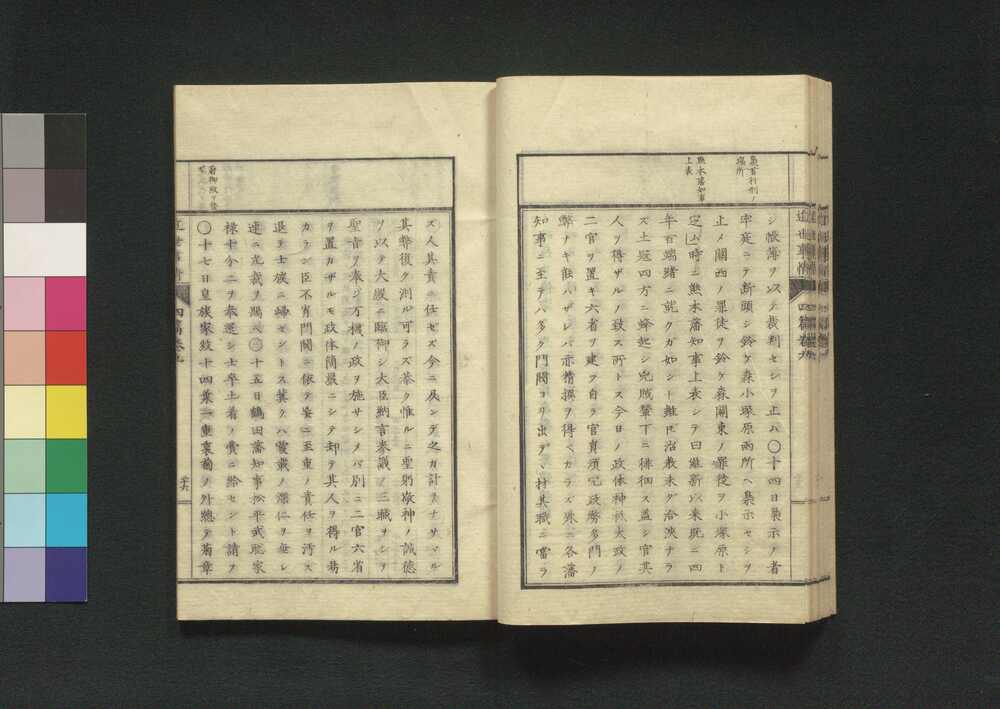 梟首行刑ノ
場所
熊本藩知事
上表
シ帳簿ヲ以テ裁判セシヲ止ム〇十四日梟示ノ者
牢庭ニテ斷頭シ鈴ケ森小塚原兩所ヘ梟示セシヲ
止メ關西ノ罪徒ヲ鈴ケ森關東ノ罪徒ヲ小塚原ト
定ム時ニ熊本藩知事上表シテ曰維新以來既ニ四
年百端緒ニ就クガ如シト雖𪜈治教未ダ洽浹ナラ
ズ土冦四方ニ蜂起シ兇賊輦下ニ徘徊ス蓋シ官其
人ヲ得ザルノ致ス所トス今日ノ政体神祇太政ノ
二官ヲ置キ六省ヲ建ヲ自ラ官員須冗政務多門ノ
弊ナキ能ハザレバ亦精撰ヲ得ベカラズ殊ニ各藩
知事ニ至テハ多ク門閥ヨリ出デ、材其職ニ當ラ
近世事情
四篇巻九
ズ人其責ニ任セズ今ニ及ンデ之ガ計ヲナサヾル
其弊復ク測ル可ラズ恭ク惟ルニ聖躬敬神ノ誠德
ヲ以テ大殿ニ臨御シ大臣納言參議ノ三職ヲシテ
聖旨ヲ奉ジ万機ノ政ヲ施サシメバ別ニ二官六省
ヲ置カザルモ政体簡嚴ニシテ却テ其人ヲ得ル易
カラン臣不肖門閥ニ依テ妄ニ至重ノ責任ヲ汚ス
退テ士族ニ歸セントス冀クハ覆載ノ深仁ヲ垂レ
速ニ允裁ヲ賜ヘ〇十五日鶴田藩知事松平武聰家
祿十分ニヲ奉還シ士卒上着ノ賞ニ給セント請フ
〇十七日皇族家紋十四葉一重裏菊ノ外總テ菊章
近世事情
四篇巻九